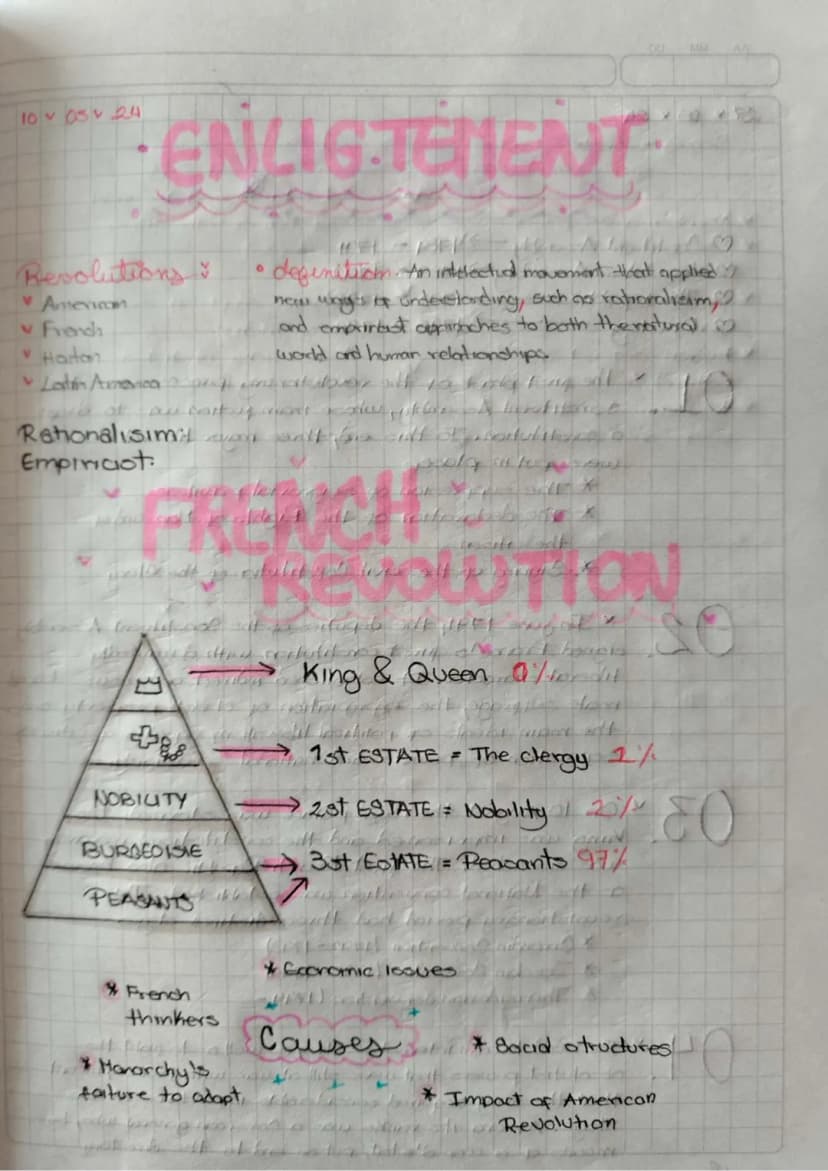 10 v 05 v 24
ENLIGTEMENT
Revolutions:
American
French
Haitan
Latin America
• defenition. An intelectual movement that applied
new ways of understanding, such as rationalisim,
and empiricist approaches to both the natural
world and human relationships.
Rationalisim:
Empiricist:
FRENCH
REVOLUTION
King & Queen 0%
1st ESTATE = The clergy 1%
NOBILITY
2st ESTATE = Nobility 2%
BURGEOISIE
3st EstATE = Peasants 97%
PEASANTS
* Economic issues
* French
thinkers
Causes
* Social structures
* Monarchy's
failure to adapt
* Impact of American
Revolution